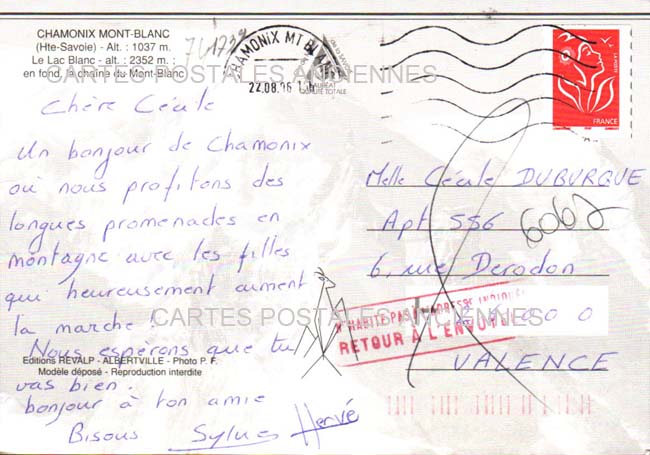 CHAMONIX MONT-BLANC
(Hte-Savoie) - Alt. : 1037 m.
Le Lac Blanc - alt. : 2352 m. :
en fond, la chaîne du Mont-Blanc
CHAMONIX MT BLANC
22.08.06
QUALITÉ TOTALE
FRANCE
CARTES POSTALES ANCIENNES
Chère Cécile
Un bonjour de Chamonix
où nous profitons des
longues promenades en
montagne avec les filles
qui heureusement aiment
la marche !
Nous espérons que tu
vas bien.
bonjour à ton amie
Bisous Sylvie Hervé
Editions REVALP - ALBERTVILLE - Photo P. F.
Modèle déposé - Reproduction interdite
Melle Cécile DUBURQUE
Apt 556
6, rue Derodon
000
VALENCE
N'HABITE PAS L'ADRESSE INDIQUÉE
RETOUR À L'ENVOYEUR
CARTES POSTALES ANCIENNES